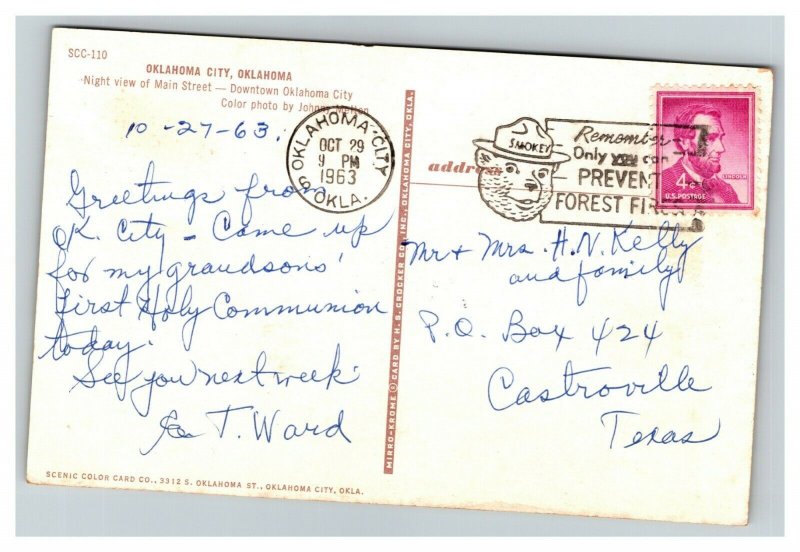 SCC-110
OKLAHOMA CITY, OKLAHOMA
Night view of Main Street — Downtown Oklahoma City
Color photo by Johnny Melton
10-27-63.
Greetings from
OK. City – Came up
for my grandsons'
First Holy Communion
today.
See you next week.
T. Ward
SCENIC COLOR CARD CO., 3312 S. OKLAHOMA ST., OKLAHOMA CITY, OKLA.
MIRRO-KROME © CARD BY H. S. CROCKER CO., INC., OKLAHOMA CITY, OKLA.
OKLAHOMA CITY
OCT 29
9 PM
1963
OKLA.
address
SMOKEY
Remember
Only you can
PREVENT
FOREST FIRES
4¢
LINCOLN
U.S. POSTAGE
Mr & Mrs. H. N. Kelly
and family
P.O. Box 424
Castroville
Texas